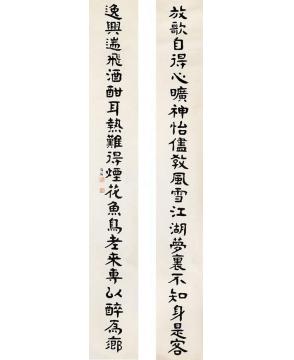 放歌自得心曠神怡儘教風雪江湖夢裏不知身是客
逸興遄飛酒酣耳熱難得煙花魚鳥老來專以醉為鄉